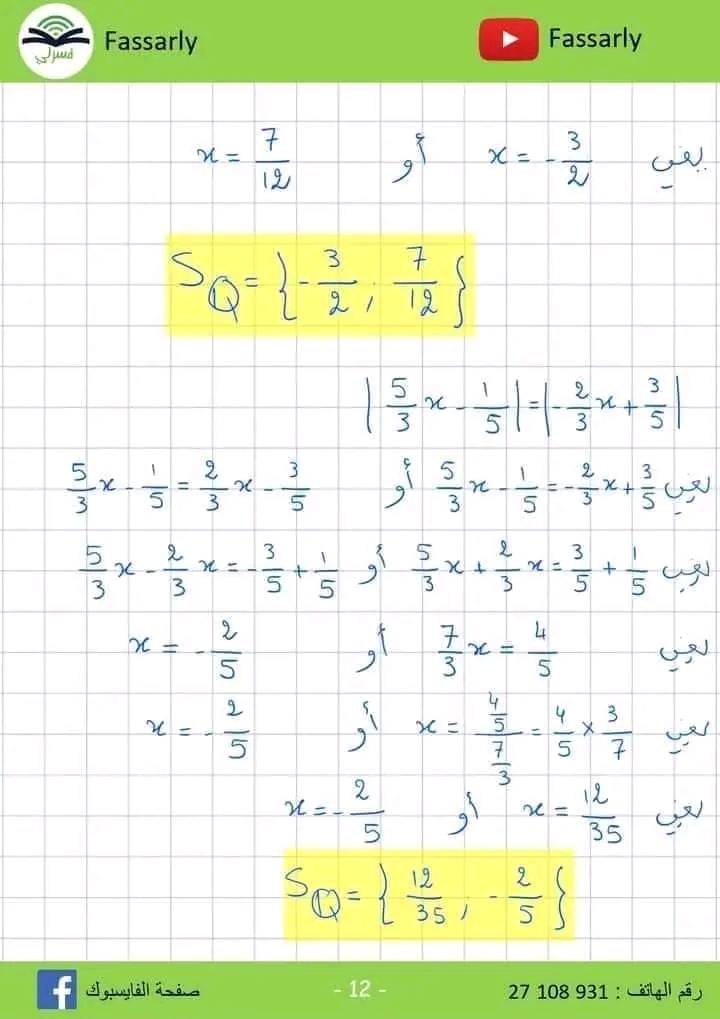 فسرلي Fassarly Fassarly
يعني x = -3/2 أو x = 7/12
S_Q = {-3/2 ; 7/12}
|5/3 x - 1/5| = |-2/3 x + 3/5|
يعني 5/3 x - 1/5 = -2/3 x + 3/5 أو 5/3 x - 1/5 = 2/3 x - 3/5
يعني 5/3 x + 2/3 x = 3/5 + 1/5 أو 5/3 x - 2/3 x = -3/5 + 1/5
يعني 7/3 x = 4/5 أو x = -2/5
يعني x = (4/5)/(7/3) = 4/5 × 3/7 أو x = -2/5
يعني x = 12/35 أو x = -2/5
S_Q = {12/35 ; -2/5}
رقم الهاتف : 931 108 27 - 12 - صفحة الفايسبوك